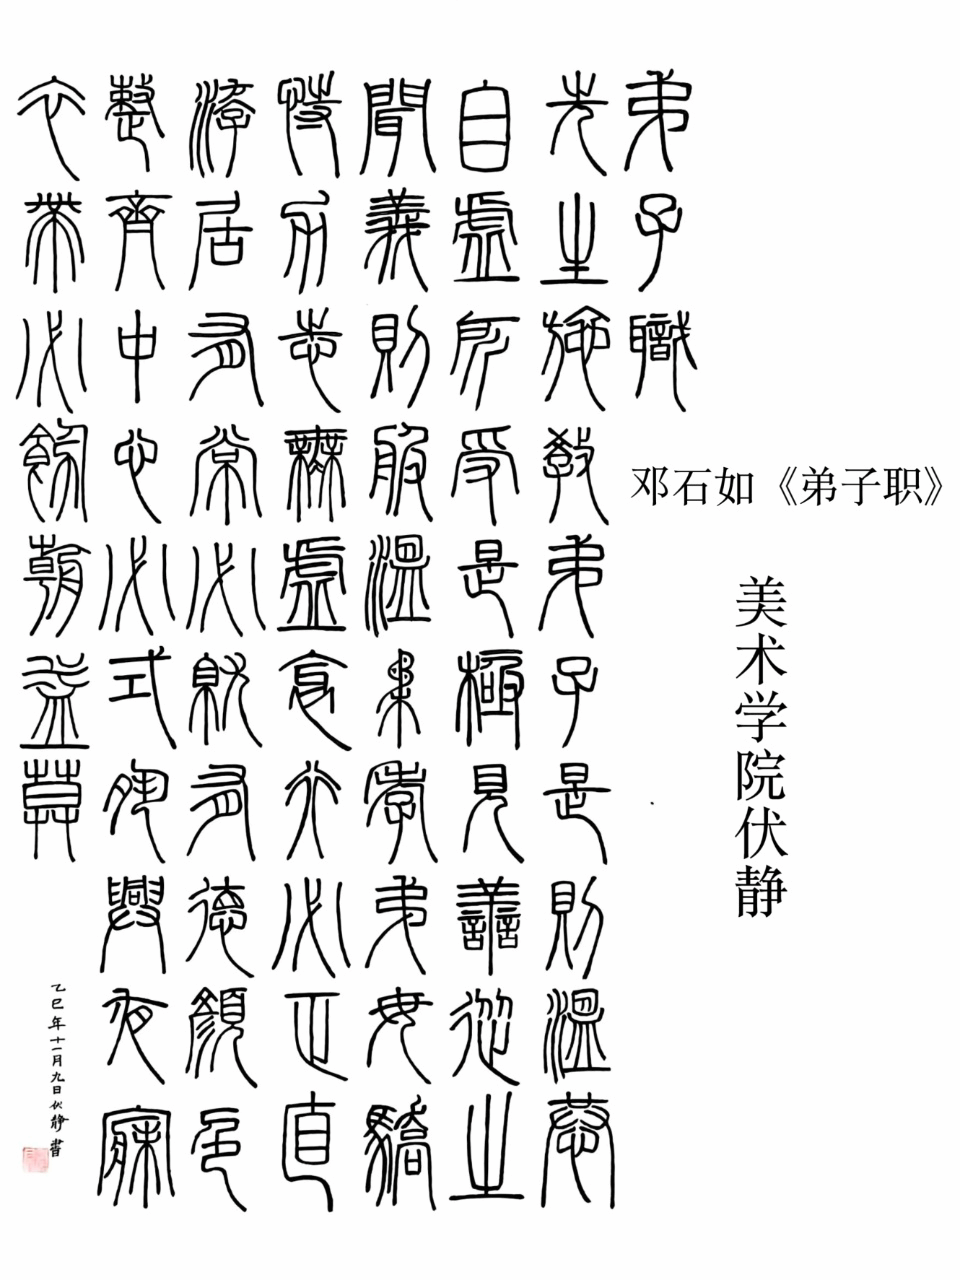 弟子職
先生施教弟子是則溫恭
自虛所受是極見善從之
聞義則服溫柔孝弟毋驕
恃力志無虛衺行必正直
游居有常必就有德顏色
整齊中心必式夙興夜寐
衣帶必飭朝益莫
乙巳年十一月九日伏静書
邓石如《弟子职》
美术学院伏静